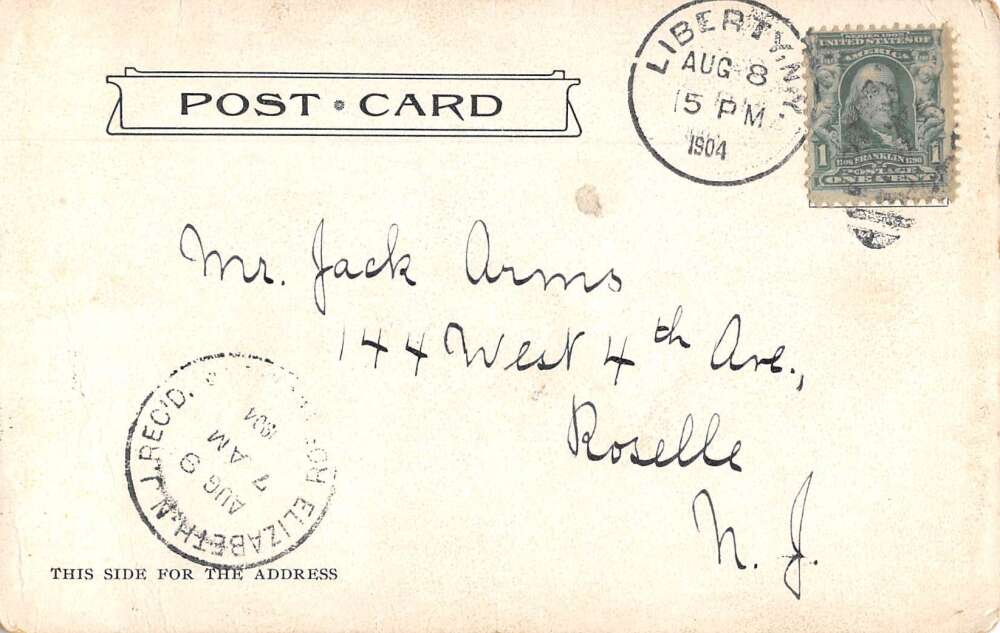 POST CARD
LIBERTY, N.Y.
AUG 8
5 PM
1904
SERIES 1902
UNITED STATES OF
AMERICA
1 FRANKLIN 1
POSTAGE
ONE CENT
Mr. Jack Arms
144 West 4th Ave.,
Roselle
N. J.
ELIZABETH, N.J. REC'D.
AUG 9
7 AM
1904
THIS SIDE FOR THE ADDRESS